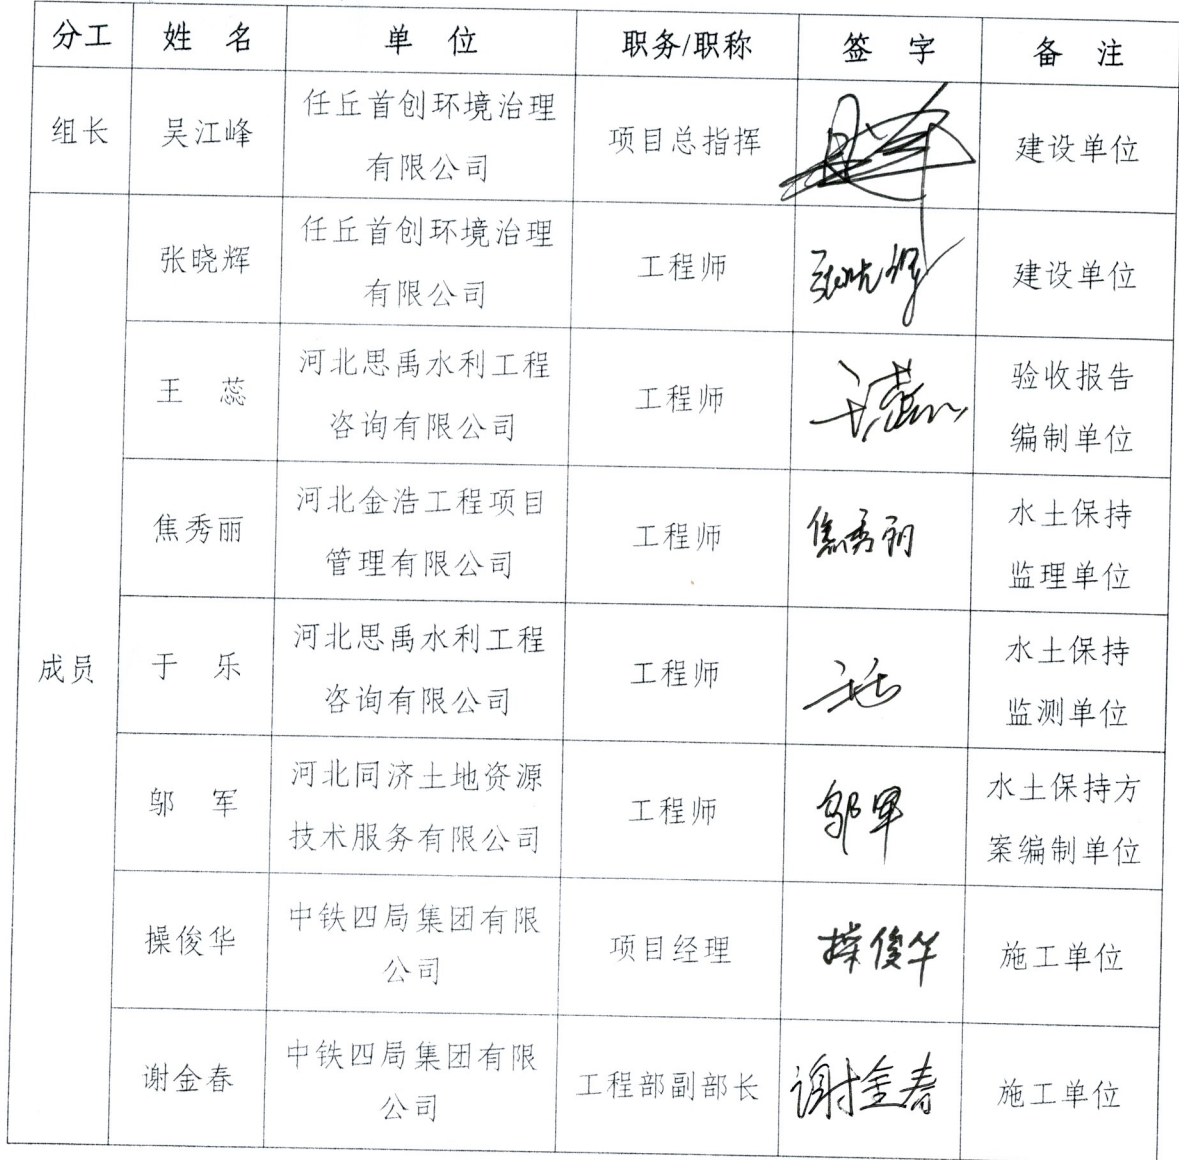 分工 姓 名 单 位 职务/职称 签 字 备 注
组长 吴江峰 任丘首创环境治理
有限公司 项目总指挥 建设单位
成员
张晓辉 任丘首创环境治理
有限公司 工程师 张晓辉 建设单位
王 蕊 河北思禹水利工程
咨询有限公司 工程师 王蕊 验收报告
编制单位
焦秀丽 河北金浩工程项目
管理有限公司 工程师 焦秀丽 水土保持
监理单位
于 乐 河北思禹水利工程
咨询有限公司 工程师 于乐 水土保持
监测单位
邬 军 河北同济土地资源
技术服务有限公司 工程师 邬军 水土保持方
案编制单位
操俊华 中铁四局集团有限
公司 项目经理 操俊华 施工单位
谢金春 中铁四局集团有限
公司 工程部副部长 谢金春 施工单位